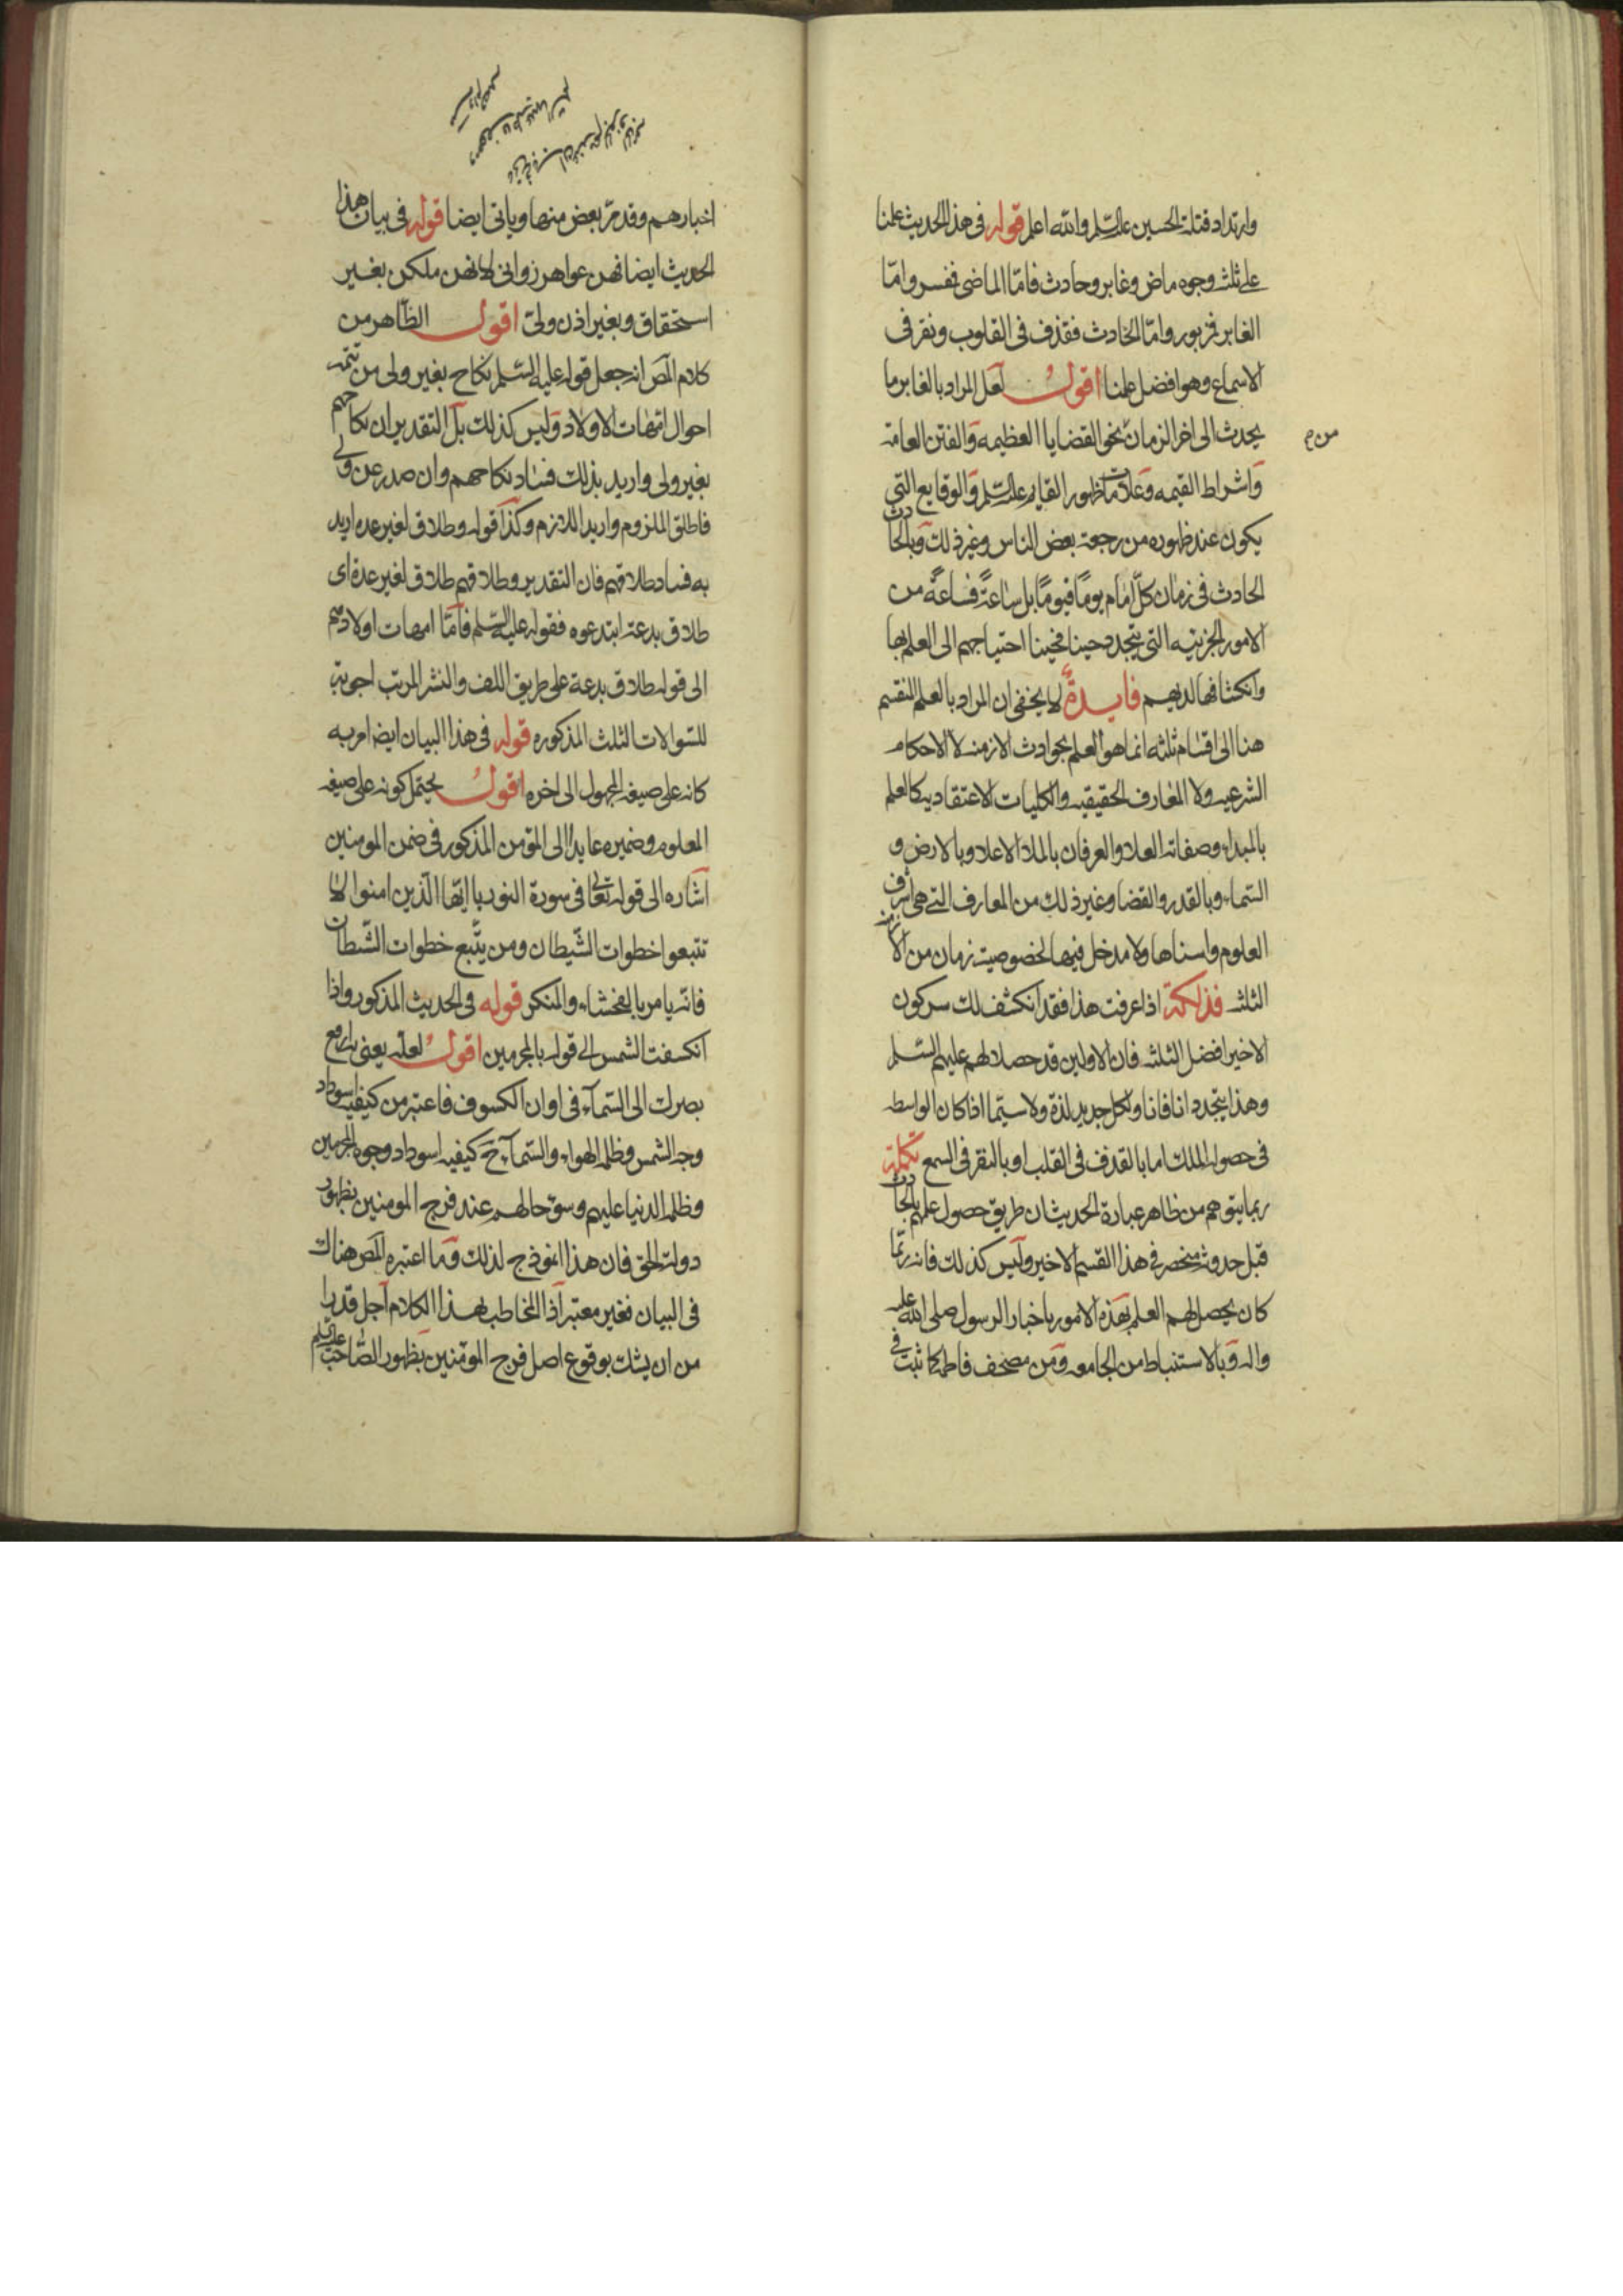 وارتداد قتلة الحسين علیه السلم والله اعلم قوله فى هذا الحديث علمنا
على ثلث وجوه ماض وغابر وحادث فامّا الماضى فمفسر وامّا
الغابر فمزبور وامّا الحادث فقذف فى القلوب ونقر فى
الاسماع وهو افضل علمنا اقول لعل المراد بالغابر ما
يحدث الى اخر الزمان من نحو القضايا العظيمه والفتن العامة
من
واشراط القيمه وعلامات ظهور القايم علیه السلم والوقايع التى
يكون عند ظهوره من رجعة بعض الناس وغير ذلك وبالحادث
الحادث فى زمان كلّ امام يومًا فيومًا بل ساعةً فساعةً من
الامور الجزئيه التى يتجدد حينا فحينا احتياجهم الى العلم بها
وانكشافها لديهم فايدة لا يخفى ان المراد بالعلم المنقسم
هنا الى اقسام ثلثه انما هو العلم بحوادث الازمنه لا الاحكام
الشرعيه ولا المعارف الحقيقيه والكليات الاعتقاديه كالعلم
بالمبداء وصفاته العلا والعرفان بالملا الاعلا وبالارض و
السّماء وبالقدر والقضا وغير ذلك من المعارف التى هى اشرف
العلوم واسناها ولا مدخل فيها لخصوصية زمان من الازمنه
الثلث فذلكة اذا عرفت هذا فقد انكشف لك سر كون
الاخير افضل الثلثه فان الاولين قد حصلا لهم عليهم السّلم
وهذا يتجدد انا فانا ولكل جديد لذة ولا سيّما اذا كان الواسطه
فى حصوله الملك اما بالقذف فى القلب او بالنقر فى السمع تكملة
ربما يتوهم من ظاهر عبارة الحديث ان طريق حصول علمهم بالحادث
قبل حدوثه منحصر فى هذا القسم الاخير وليس كذلك فانه ربّما
كان يحصل لهم العلم بهذه الامور باخبار الرسول صلى الله عليه
واله وبالاستنباط من الجامعه ومن مصحف فاطمه كما ثبت فى
اخبارهم وقد مرّ بعض منها وياتى ايضا قوله فى بيان هذا
الحديث ايضا فهن عواهر زوانى لانهن ملكن بغير
استحقاق وبغير اذن ولىّ اقول الظّاهر من
كلام المص انه جعل قوله عليه السّلم نكاح بغير ولى من تتمه
احوال امّهات الاولاد وليس كذلك بل التقدير ان نكاحهم
بغير ولى واريد بذلك فساد نكاحهم وان صدر عن ولى
فاطلق الملزوم واريد اللازم وكذا قوله وطلاق لغير عده اريد
به فساد طلاقهم فان التقدير وطلاقهم طلاق لغير عدة اى
طلاق بدعة ابتدعوه فقوله عليه السّلم فامّا امهات اولادهم
الى قوله طلاق بدعة على طريق اللف والنشر المرتب اجوبة
للسّوالات الثلث المذكوره قوله فى هذا البيان ايضا مر به
كانه على صيغه المجهول الى اخره اقول يحتمل كونه على صيغه
المعلوم وضميره عايدا الى المؤمن المذكور فى ضمن المومنين
اشاره الى قوله تعالى فى سورة النور يا ايّها الّذين امنوا لا
تتبعوا خطوات الشّيطان ومن يتّبع خطوات الشّيطان
فانّه يامر بالفحشاء والمنكر قوله فى الحديث المذكور واذا
انكسفت الشمس الى قوله بالمجرمين اقول لعلّه يعنى به ارفع
بصرك الى السّمآء فى اوان الكسوف فاعتبر من كيفيه سوداد
وجه الشمس وظلمه الهواء والسّمآء ح كيفيه اسوداد وجوه المجرمين
وظلمه الدنيا عليهم وسوء حالهم عند فرج المومنين بظهور
دولة الحق فان هذا انموذج لذلك وما اعتبره المص هناك
فى البيان فغير معتبر اذ المخاطب بهذا الكلام اجل قدرا
من ان يشك بوقوع اصل فرج المؤمنين بظهور الصّاحب علیه السّلم